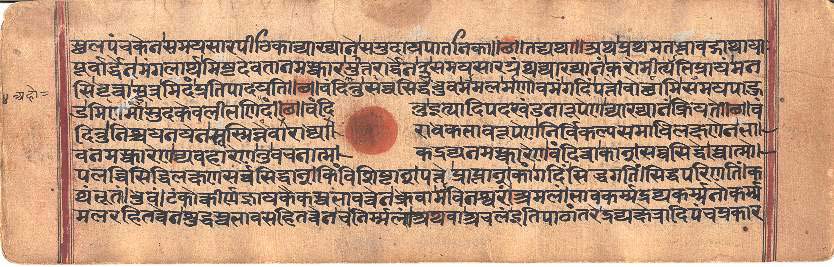 स्थलपंचकेनसमयसारपीठिकाव्याख्यानेसमुदायपातनिका॥छ॥तद्यथा॥अथप्रथमतस्तावद्गाथायाः
पूर्वार्द्धेनमंगलार्थमिष्टदेवतानमस्कारमुत्तरार्द्धेनतुसमयसारग्रंथव्याख्यानंकरोमीत्यभिप्रायंमन
सिधृत्वासूत्रमिदंप्रतिपादयति॥छ॥वदित्तुसव्वसिद्धेधुवममलमणोवमंगदिंपत्तेवोच्छामिसमयपाहु
डमिणमोसुदकेवलीभणिदं॥छ॥वंदि त्तुइत्यादिपदखंडनारूपेणव्याख्यानंक्रियते॥छ॥व
दित्तुनिश्चयनयेनस्वस्मिन्नेवाराध्या राधकभावरूपेणनिर्विकल्पसमाधिलक्षणेनभा
वनमस्कारेणव्यवहारेणतुवचनात्म कद्रव्यनमस्कारेणवंदित्वाकान्सव्वसिद्धेस्वात्मो
पलब्धिसिद्धिलक्षणसर्वसिद्धान्किंविशिष्टान्पत्तेप्राप्तान्कांगदिंसिद्धगतिंसिद्धपरिणतिंक
थंभूतांधुवंटंकोत्कीर्णज्ञायकैकस्वभावत्वेनध्रुवामविनश्वरांअमलंभावकर्म्मद्रव्यकर्म्मनोकर्म्म
मलरहितत्वेनशुद्धस्वभावसहितत्वेनचनिर्म्मलांअथवाअचलंइतिपाठांतरेद्रव्यक्षेत्रादिपंचप्रकार